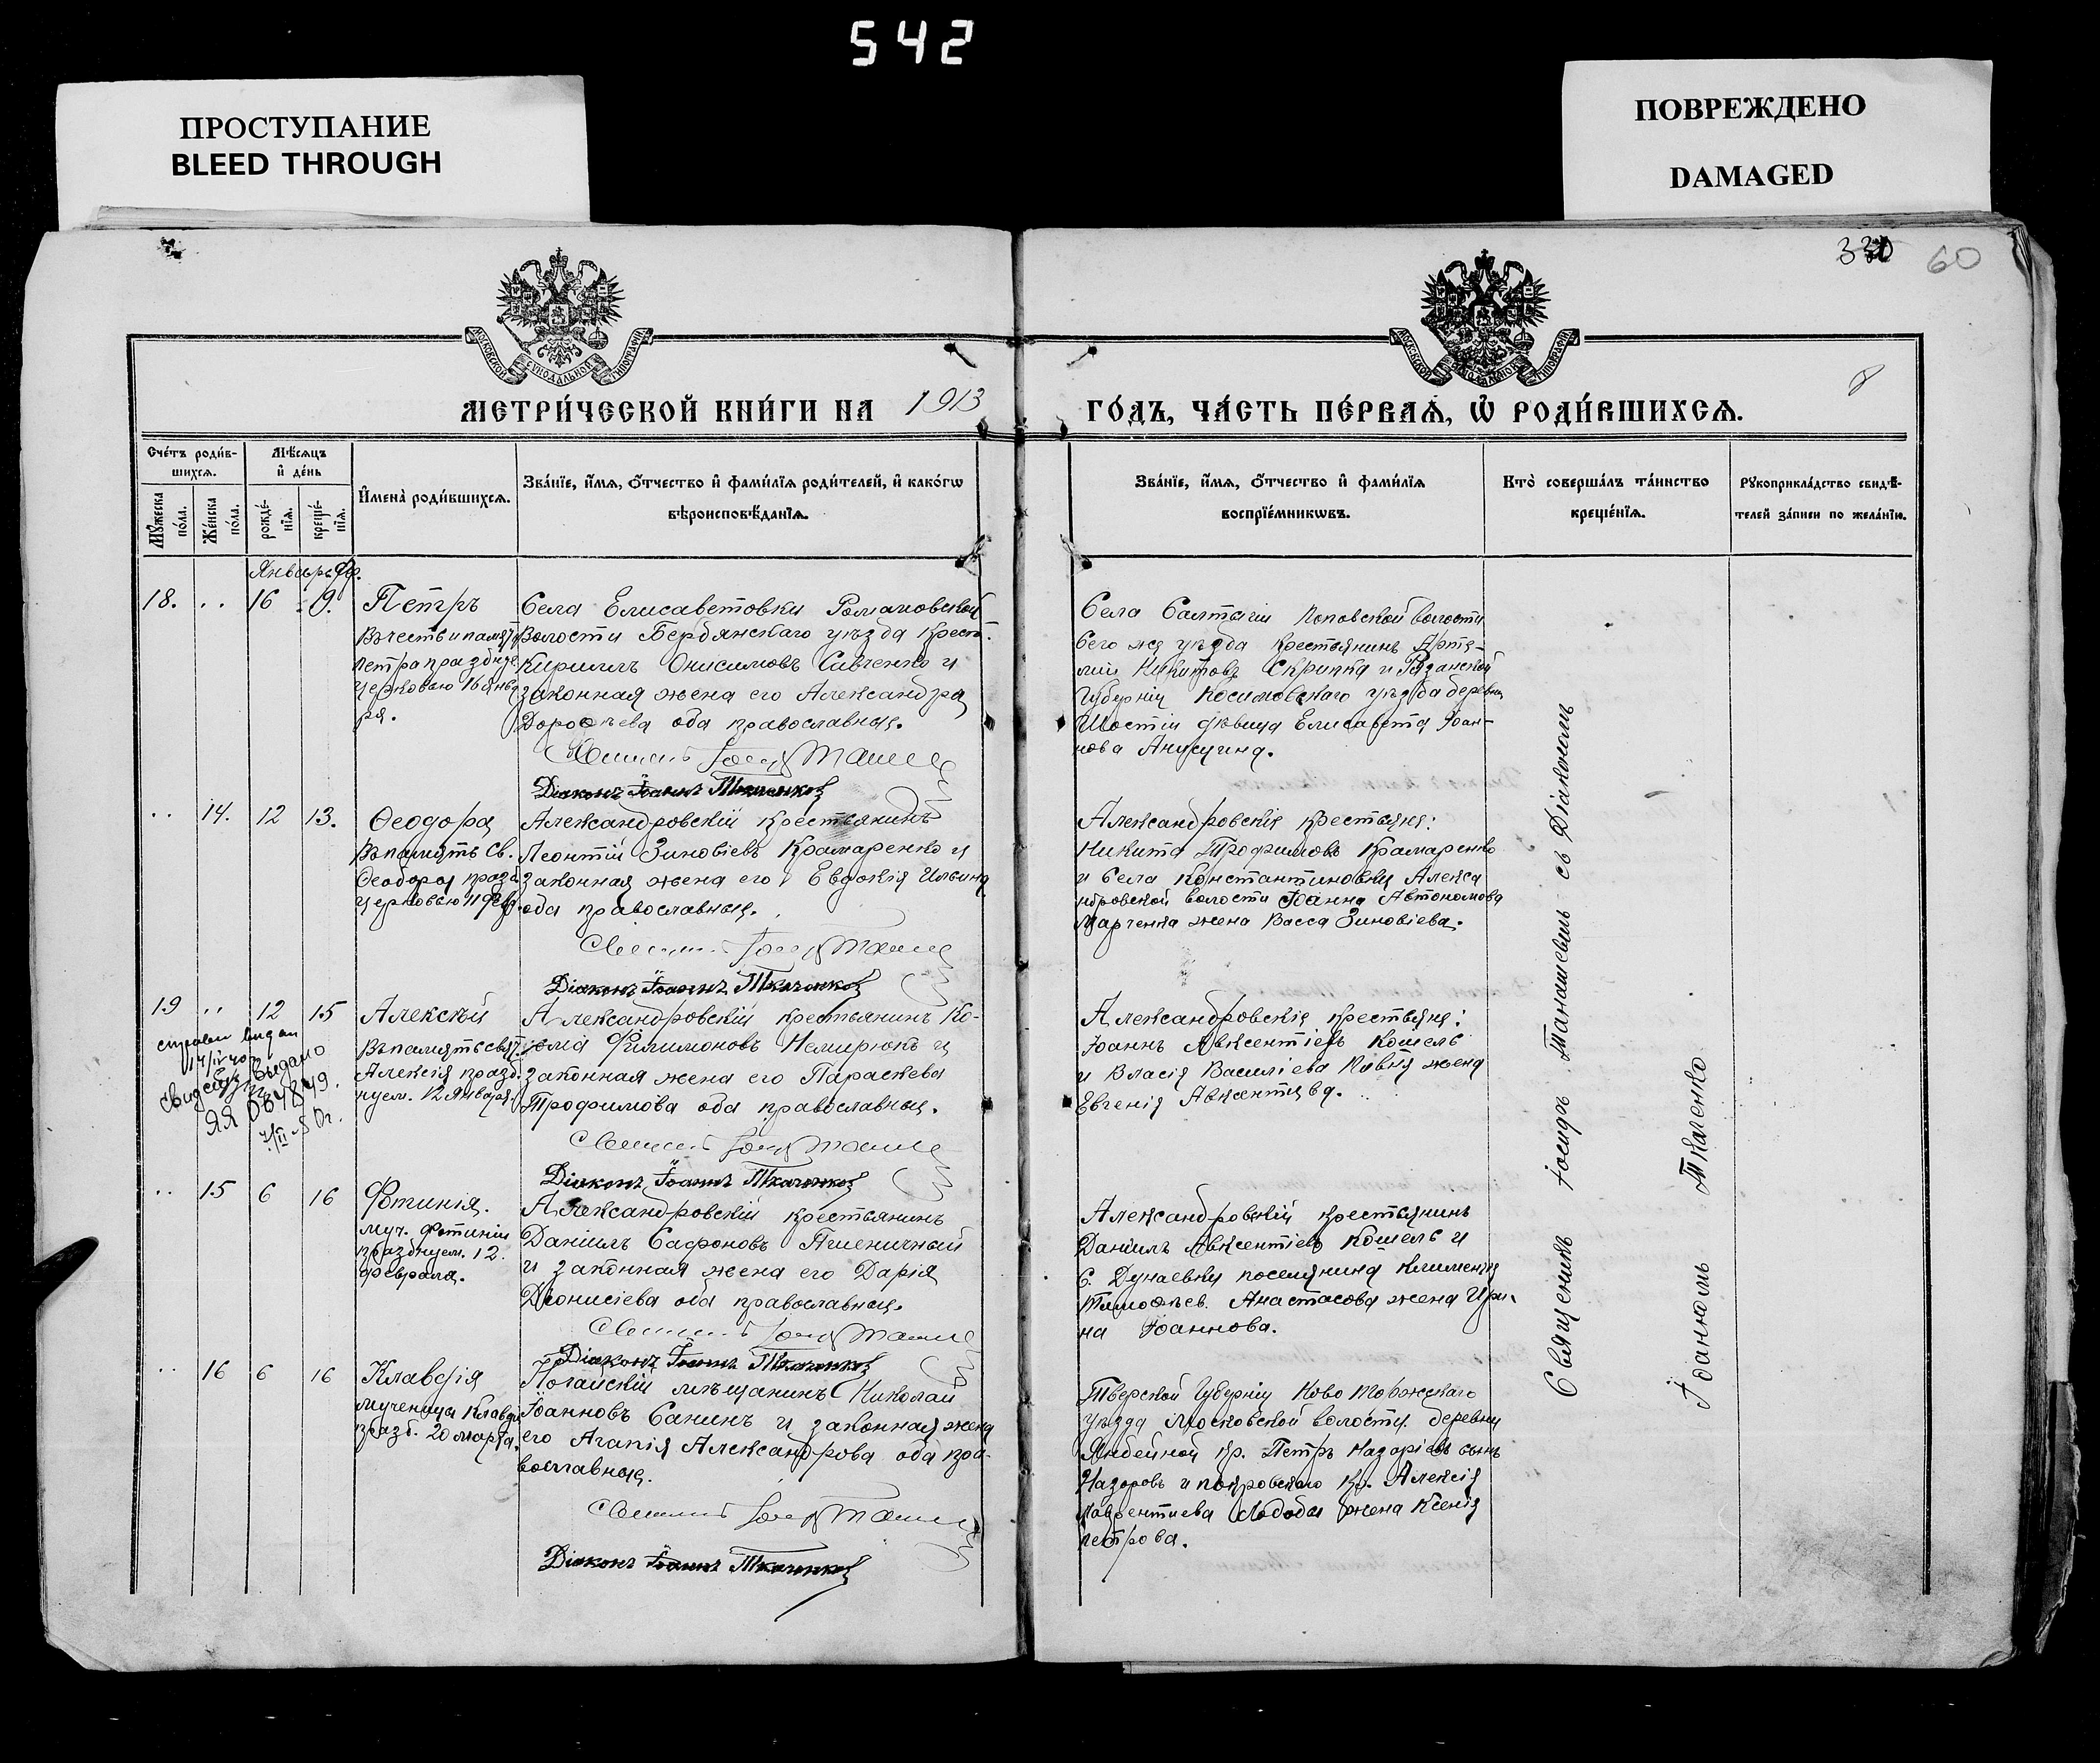 542
ПРОСТУПАНИЕ
BLEED THROUGH
ПОВРЕЖДЕНО
DAMAGED
60
МЕТРИ́ЧЕСКОЙ КНИ́ГИ НА 1913
ГО́ДЪ, ЧА́СТЬ ПЕ́РВАѦ, Ѡ҆ РОДИ́ВШИХСѦ.
Сче́тъ роди́в-
шихсѧ.
Мꙋ́жеска по́ла.
Же́нска по́ла.
Мѣ́сѧцъ
и҆ де́нь
рожде́-
нїѧ.
креще́-
нїѧ.
И҆мена̀ роди́вшихсѧ.
Зва́нїе, и҆́мѧ, ѻ҆́тчество и҆ фами́лїѧ роди́телей, и҆ како́гѡ
вѣроисповѣ́данїѧ.
Зва́нїе, и҆́мѧ, ѻ҆́тчество и҆ фами́лїѧ
воспрїе́мникѡвъ.
Кто̀ соверша́лъ та́инство
креще́нїѧ.
Рꙋкоприкла́дство свидѣ́-
телей за́писи по жела́нїю.
Январь
18. .. 16 9. Петръ
Въ честь и память
Петра празднуе.
церковью 16 янва
ря.
Села Елисаветовки Романовской
Волости Бердянскаго уѣзда крест.
Кириллъ Онисимовъ Савченко и
законная жена его Александра
Дороѳѣева оба православные.
Діаконъ Іоаннъ Ткаченко
Села Салтычіи Поповской волости
Сего же уѣзда крестьянинъ Арте-
мій Никитовъ Скрипка и Рязанской
Губерніи Косимовскаго уѣзда деревни
Шостіи дѣвица Елисавета Іоан-
нова
.. 14. 12 13. Ѳеодора
Въ память св.
Ѳеодоры празд.
церковью 11 фев.
Александровскій крестьянинъ
Леонтій Зиновіевъ Крамаренко и
законная жена его Евдокія Ильина
оба православные.
Діаконъ Іоаннъ Ткаченко
Александровскія крестьяне:
Никита Трофимовъ Крамаренко
и села Константиновки Алекса
ндровской волости Іоанна Автономова
Марченка жена Васса Зиновіева.
19 .. 12 15 Алексѣй
Въ память свят.
Алексія празд.
нуем. 12 Января.
выдано
ЯЯ 084849.
Александровскій крестьянинъ Ко-
зма Филимоновъ Немирюкъ и
законная жена его Параскева
Трофимова оба православные.
Діаконъ Іоаннъ Ткаченко
Александровскія крестьяне:
Іоаннъ Авксентіевъ Кошель
и Власія Василіева жена
Евгенія Авксентьева.
.. 15 6 16 Фотинія.
муч. Фотиніи
празднуем. 12.
февраля.
Александровскій крестьянинъ
Даніилъ Сафоновъ Пшеничный
и законная жена его Дарія
Діонисіева оба православные.
Діаконъ Іоаннъ Ткаченко
Александровскій крестьянинъ
Даніилъ Авксентіевъ Кошель и
с. Дунаевки поселянина Климентія
Тимоѳѣев. Анастасова жена Ири-
на Іоаннова.
.. 16 6 16 Клавдія
мученицы Клавдіи
празд. 20 марта.
Ногайскій мѣщанинъ Николай
Іоанновъ Санинъ и законная жена
его Агапія Александрова оба пра-
вославные.
Діаконъ Іоаннъ Ткаченко
Тверской Губерніи Ново Торжскаго
уѣзда Московской волости деревни
кр. Петръ Назаріевъ сынъ
Назаровъ и покровскаго кр. Алексія
Лаврентиева Лободы жена Ксенія
Петрова.
Священникъ Іосифъ Танашевичъ съ Діакономъ
Іоанномъ Ткаченко